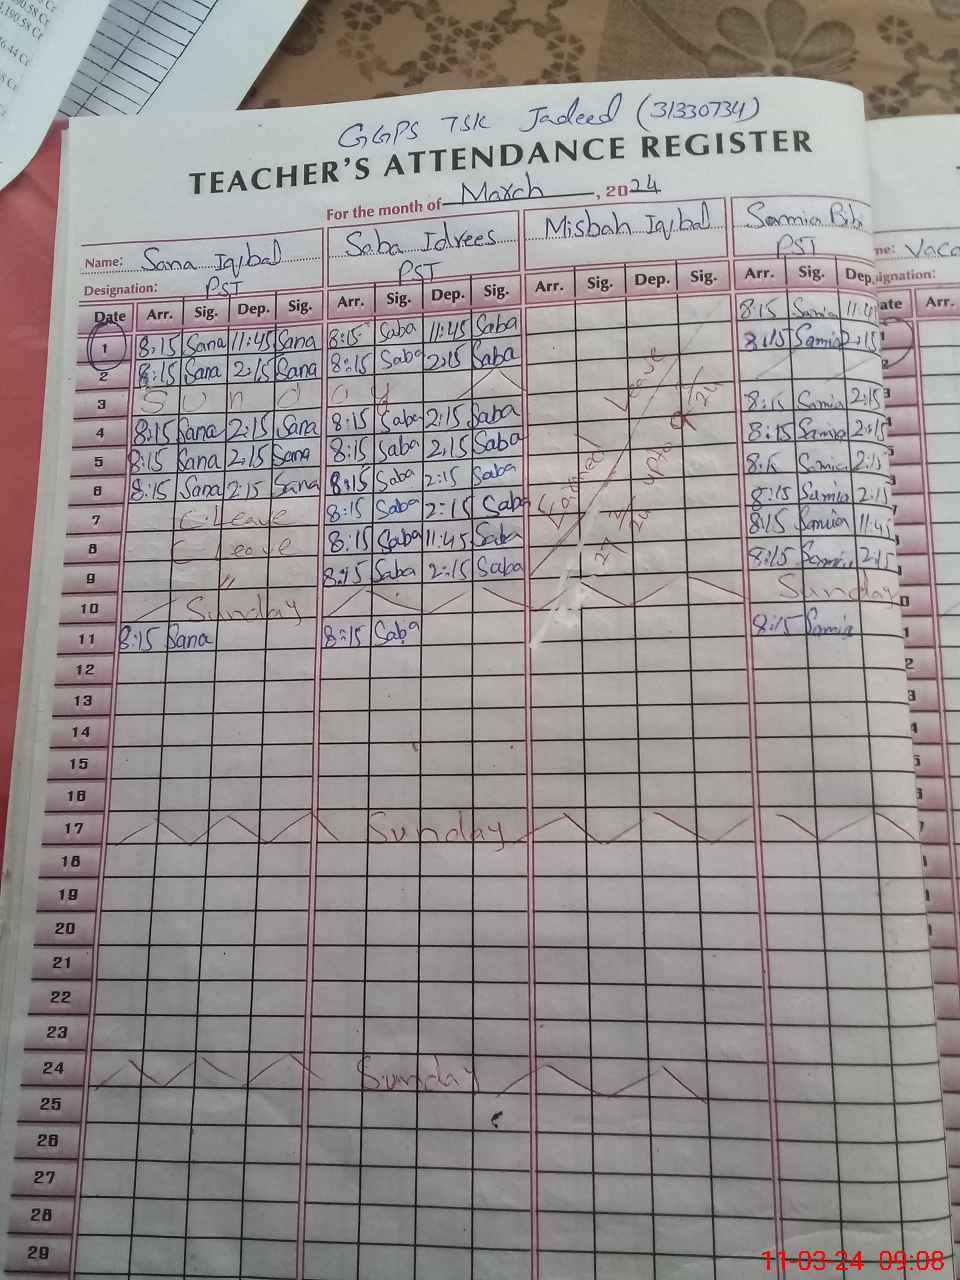 GGPS TSK Jadeed (31330734)
TEACHER'S ATTENDANCE REGISTER
For the month of March, 2024
Name: Sana Iqbal Saba Idrees Misbah Iqbal Samia Bibi me: Vaca
Designation: PST PST PST signation:
Date Arr. Sig. Dep. Sig. Arr. Sig. Dep. Sig. Arr. Sig. Dep. Sig. Arr. Sig. Dep. ate Arr.
1 8:15 Sana 11:45 Sana 8:15 Saba 11:45 Saba 8:15 Samia 11:45
2 8:15 Sana 2:15 Sana 8:15 Saba 2:15 Saba 8:15 Samia 2:15
3 Sunday
4 8:15 Sana 2:15 Sana 8:15 Saba 2:15 Saba 8:15 Samia 2:15
5 8:15 Sana 2:15 Sana 8:15 Saba 2:15 Saba 8:15 Samia 2:15
6 8:15 Sana 2:15 Sana 8:15 Saba 2:15 Saba 8:15 Samia 2:15
7 C. Leave 8:15 Saba 2:15 Saba 8:15 Samia 2:15
8 C Leave 8:15 Saba 11:45 Saba 8:15 Samia 11:45
9 " 8:15 Saba 2:15 Saba 8:15 Samia 2:15
Leave
10 Sunday Sunday
11 8:15 Sana 8:15 Saba 8:15 Samia
12
13
14
15
16
17 Sunday
18
19
20
21
22
23
24 Sunday
25
26
27
28
29
11-03-24 09:08